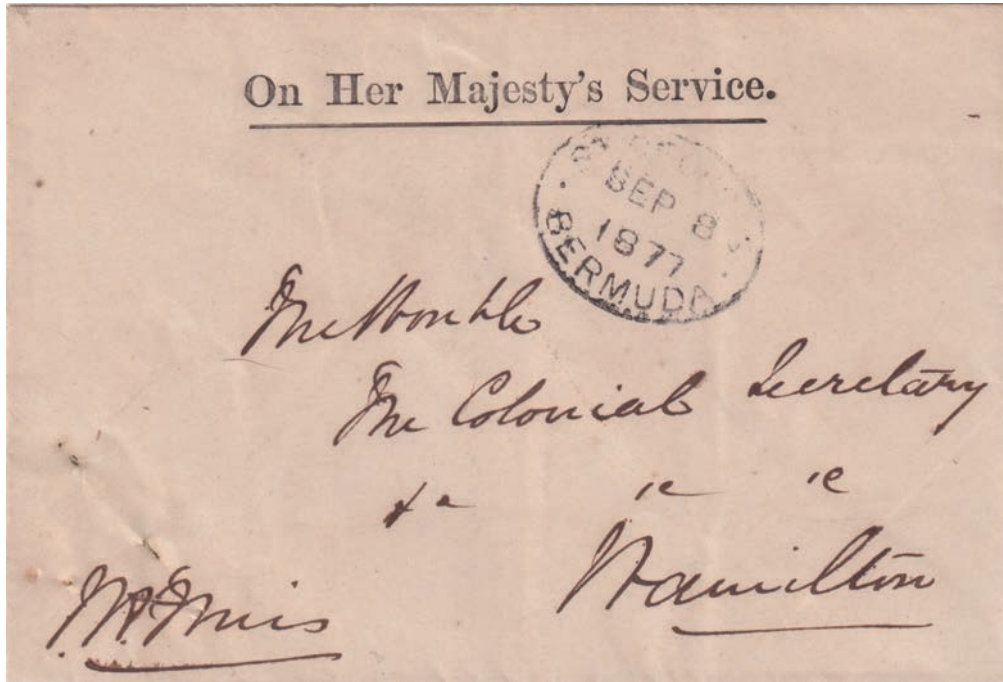 On Her Majesty's Service.
SEP 8
1877
BERMUDA
The Honble
The Colonial Secretary
&c &c &c
Hamilton